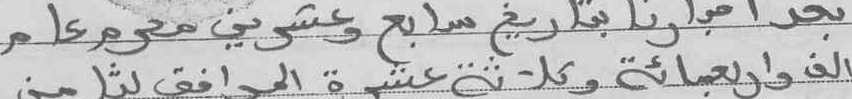 بتاريخ سابع وعشرين محرم عام
الف واربعمائة وثلاثة عشرة الموافق لثامن